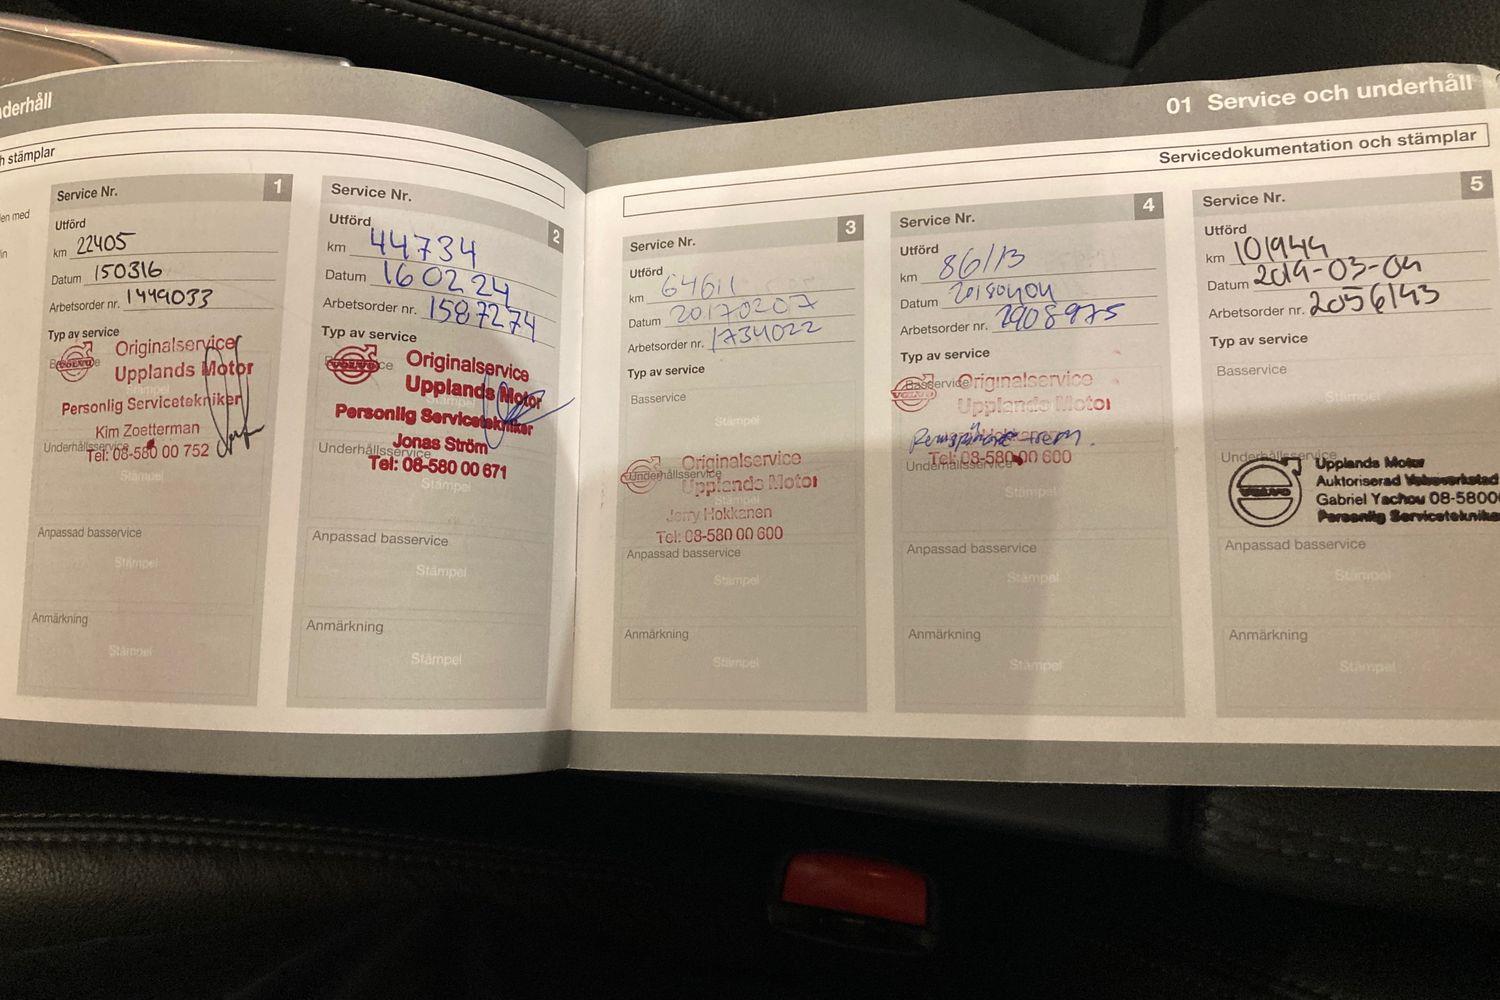 derhåll
h stämplar
en med
in
Service Nr. 1
Utförd
km 22405
Datum 150316
Arbetsorder nr. 1449033
Typ av service
Originalservice
Upplands Motor
Personlig Servicetekniker
Kim Zoetterman
Underhållsservice
Tel: 08-580 00 752
Stämpel
Anpassad basservice
Stämpel
Anmärkning
Stämpel
Service Nr. 2
Utförd
km 44734
Datum 160224
Arbetsorder nr. 1587274
Typ av service
VOLVO
Originalservice
Upplands Motor
Personlig Servicetekniker
Jonas Ström
Underhållsservice
Tel: 08-580 00 671
Stämpel
Anpassad basservice
Stämpel
Anmärkning
Stämpel
01 Service och underhåll
Servicedokumentation och stämplar
Service Nr. 3
Utförd
km 64611
Datum 20170207
Arbetsorder nr. 1734022
Typ av service
Basservice
Stämpel
Originalservice
Underhållsservice
Upplands Motor
Stämpel
Jerry Hokkanen
Tel: 08-580 00 600
Anpassad basservice
Stämpel
Anmärkning
Stämpel
Service Nr. 4
Utförd
km 86113
Datum 20180404
Arbetsorder nr. 1908975
Typ av service
Basservice
Originalservice
Upplands Motor
Tel: 08-580 00 600
Underhållsservice
Stämpel
Anpassad basservice
Stämpel
Anmärkning
Stämpel
Service Nr. 5
Utförd
km 101944
Datum 2019-03-04
Arbetsorder nr. 2056143
Typ av service
Basservice
Stämpel
Underhållsservice
VOLVO
Upplands Motor
Auktoriserad Volvoverkstad
Gabriel Yachou 08-5800
Personlig Servicetekniker
Anpassad basservice
Stämpel
Anmärkning
Stämpel